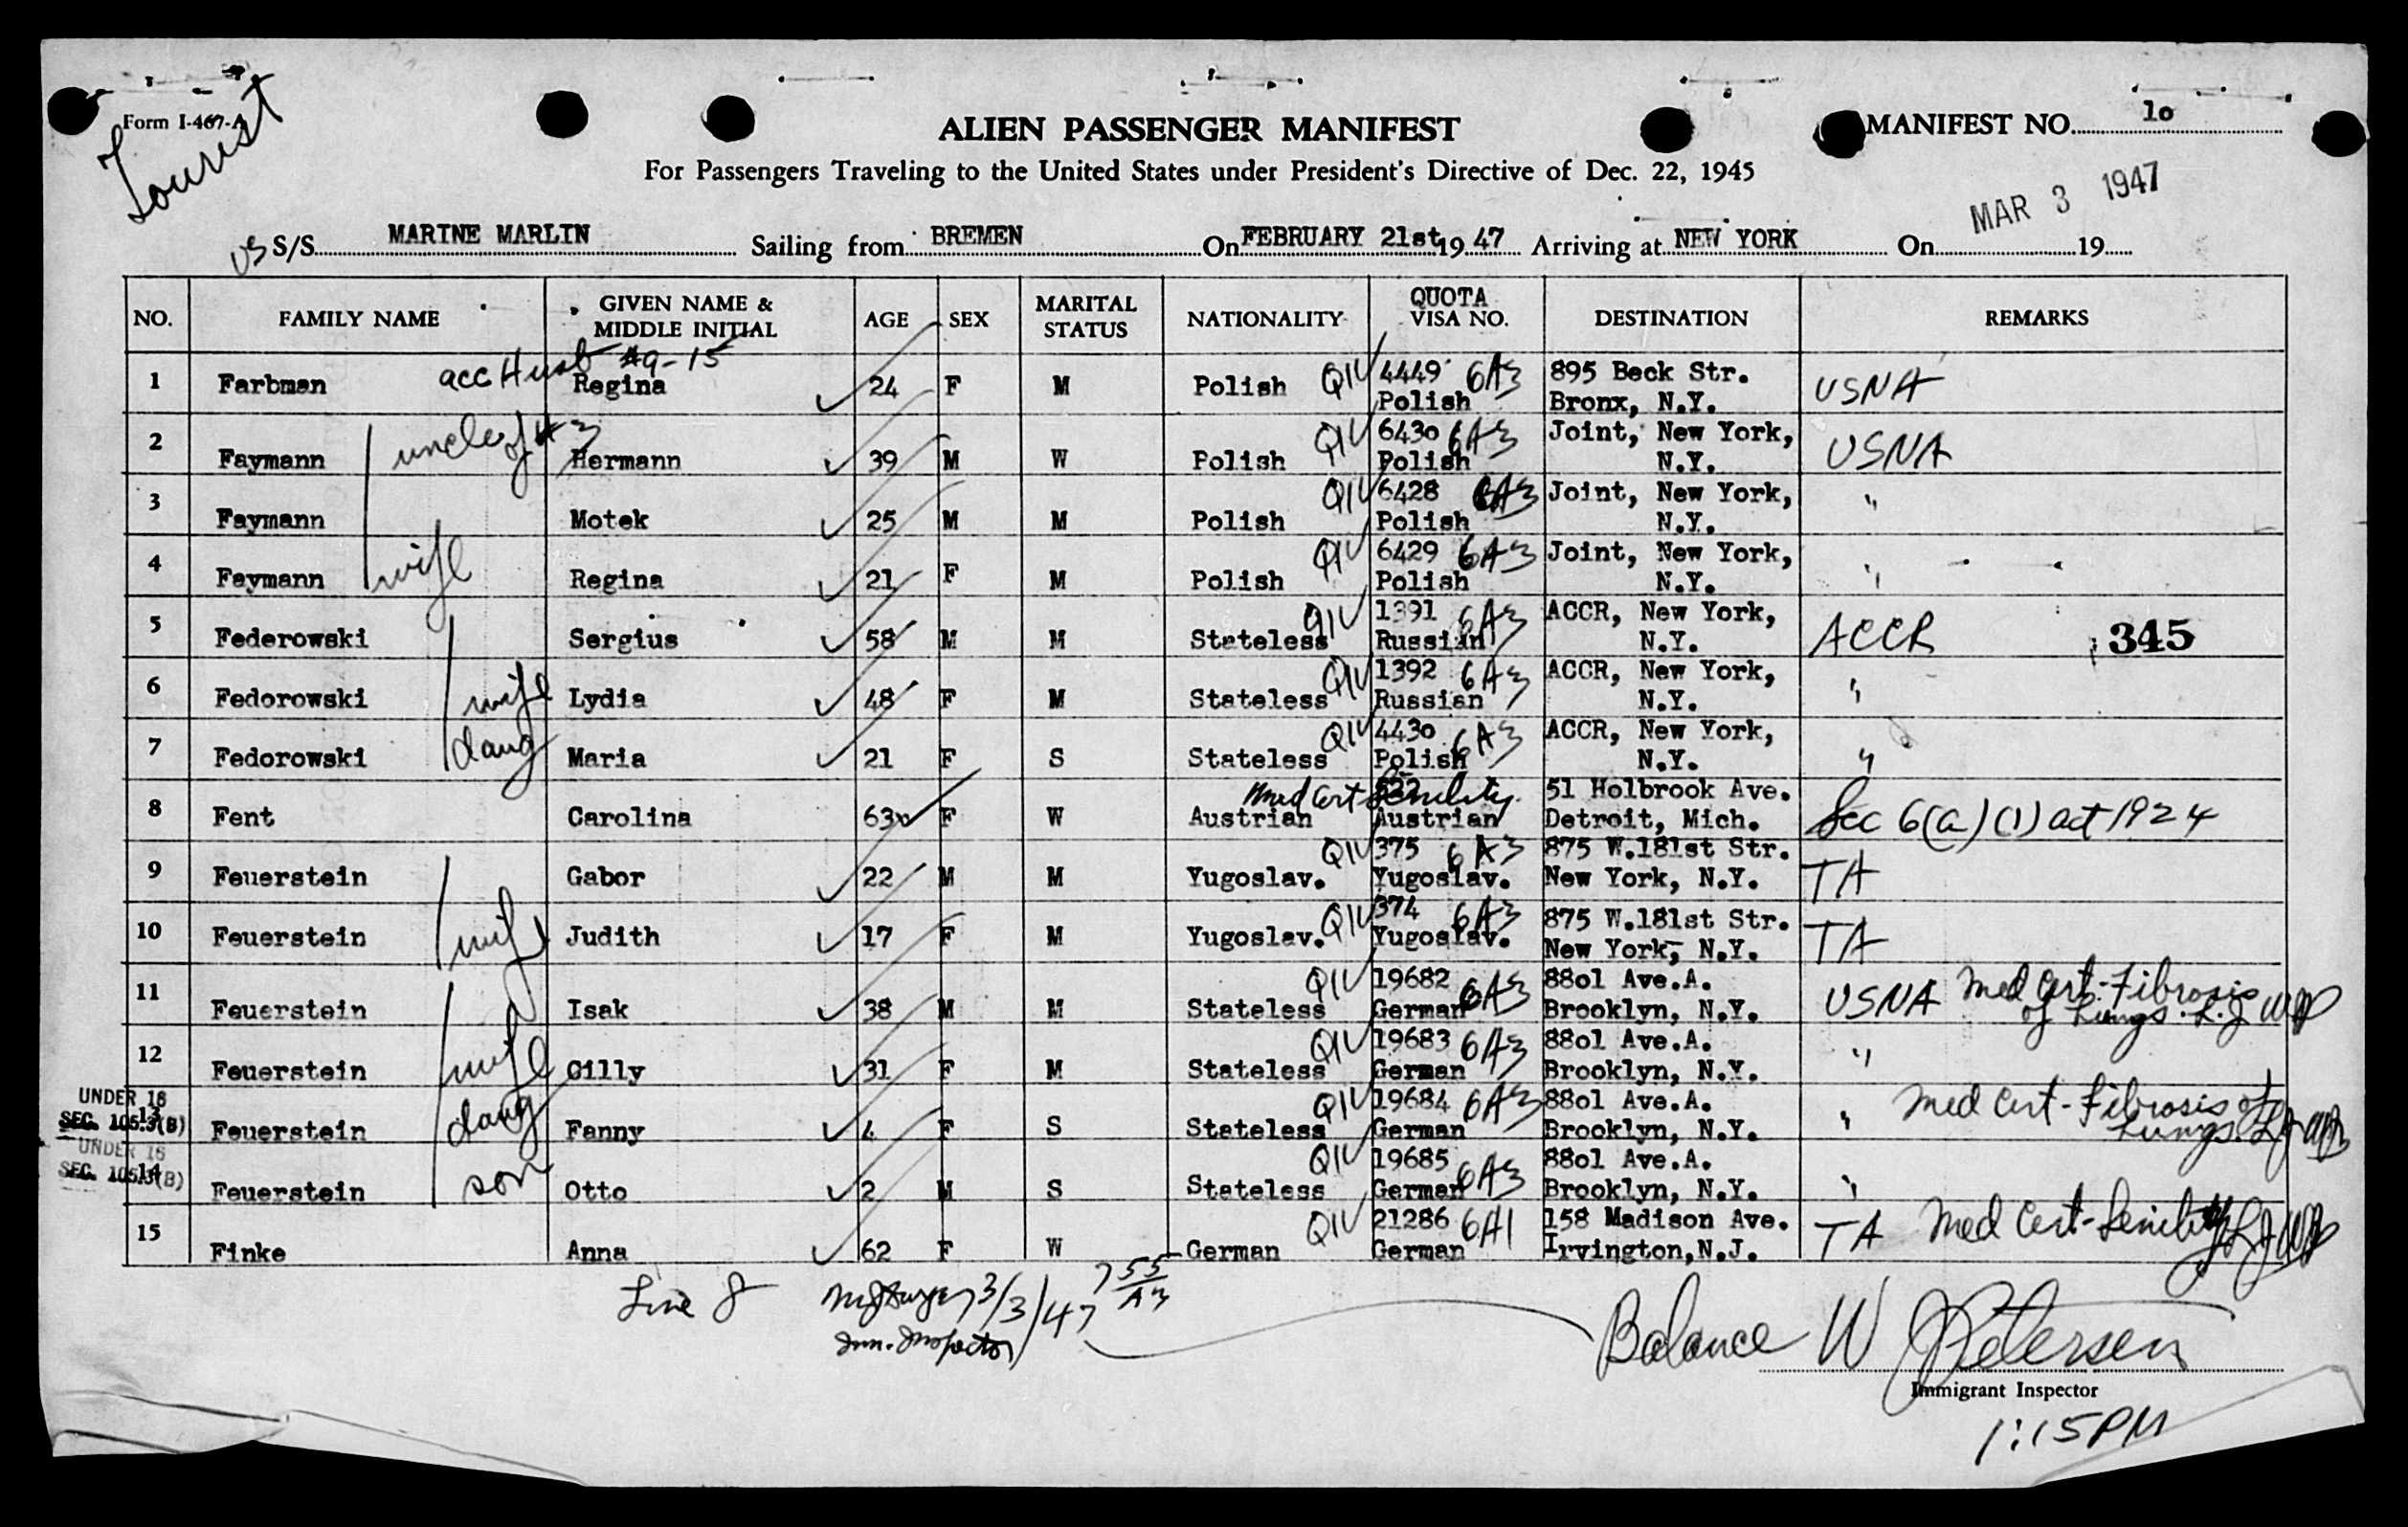 Form I-467-A
Tourist
ALIEN PASSENGER MANIFEST
MANIFEST NO. 10
For Passengers Traveling to the United States under President's Directive of Dec. 22, 1945
MAR 3 1947
US S/S MARINE MARLIN Sailing from BREMEN On FEBRUARY 21st 19 47 Arriving at NEW YORK On 19
NO. FAMILY NAME GIVEN NAME & MIDDLE INITIAL AGE SEX MARITAL STATUS NATIONALITY QUOTA VISA NO. DESTINATION REMARKS
acc Husb #9-15
1 Farbman Regina 24 F M Polish QIV 4449 6A3 Polish 895 Beck Str. Bronx, N.Y. USNA
2 Faymann uncle of #3 Hermann 39 M W Polish QIV 6430 6A3 Polish Joint, New York, N.Y. USNA
3 Faymann Motek 25 M M Polish QIV 6428 6A3 Polish Joint, New York, N.Y. "
4 Faymann wife Regina 21 F M Polish QIV 6429 6A3 Polish Joint, New York, N.Y. "
5 Federowski Sergius 58 M M Stateless QIV 1391 6A3 Russian ACCR, New York, N.Y. ACCR 345
6 Fedorowski wife Lydia 48 F M Stateless QIV 1392 6A3 Russian ACCR, New York, N.Y. "
7 Fedorowski daug Maria 21 F S Stateless QIV 4430 6A3 Polish ACCR, New York, N.Y. "
8 Fent Carolina 63 F W Austrian Med Cert Senility Austrian 51 Holbrook Ave. Detroit, Mich. Sec 6(a)(1) act 1924
9 Feuerstein Gabor 22 M M Yugoslav. QIV 375 6A3 Yugoslav. 875 W.181st Str. New York, N.Y. TA
10 Feuerstein wife Judith 17 F M Yugoslav. QIV 374 6A3 Yugoslav. 875 W.181st Str. New York, N.Y. TA
11 Feuerstein Isak 38 M M Stateless QIV 19682 6A3 German 8801 Ave.A. Brooklyn, N.Y. USNA Med Cert-Fibrosis of Lungs.
12 Feuerstein wife Cilly 31 F M Stateless QIV 19683 6A3 German 8801 Ave.A. Brooklyn, N.Y. "
UNDER 16 SEC. 105.3(B)
13 Feuerstein daug Fanny 4 F S Stateless QIV 19684 6A3 German 8801 Ave.A. Brooklyn, N.Y. " Med Cert-Fibrosis of Lungs.
UNDER 16 SEC. 105.3(B)
14 Feuerstein son Otto 2 M S Stateless QIV 19685 6A3 German 8801 Ave.A. Brooklyn, N.Y. "
15 Finke Anna 62 F W German QIV 21286 6A1 German 158 Madison Ave. Irvington,N.J. TA Med Cert-Senility
Line 8 3/3/47 7 55 AM
Imm. Inspector
Balance W J Petersen
Immigrant Inspector
1:15PM